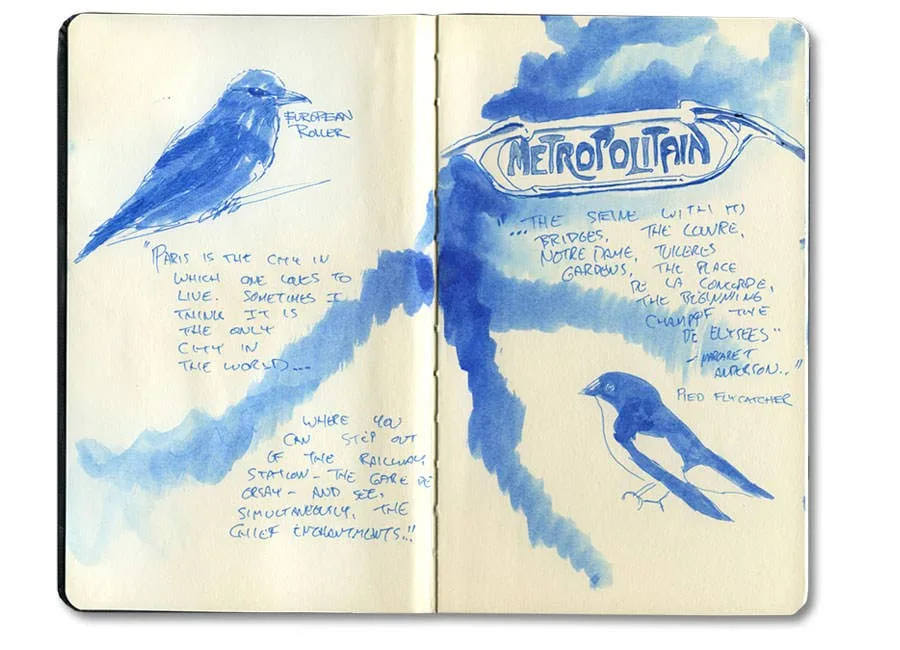 EUROPEAN
ROLLER
"PARIS IS THE CITY IN
WHICH ONE LOVES TO
LIVE. SOMETIMES I
THINK IT IS
THE ONLY
CITY IN
THE WORLD...
WHERE YOU
CAN STEP OUT
OF THE RAILWAY
STATION - THE GARE DE
ORSAY - AND SEE,
SIMULTANEOUSLY, THE
CHIEF ENCHANTMENTS.."
METROPOLITAIN
"...THE SEINE WITH ITS
BRIDGES, THE LOUVRE,
NOTRE DAME, TUILERES
GARDENS, THE PLACE
DE LA CONCORDE,
THE BEGINNING
OF THE
CHAMP
DE ELYSEES"
- MARGARET
ANDERSON.."
PIED FLYCATCHER